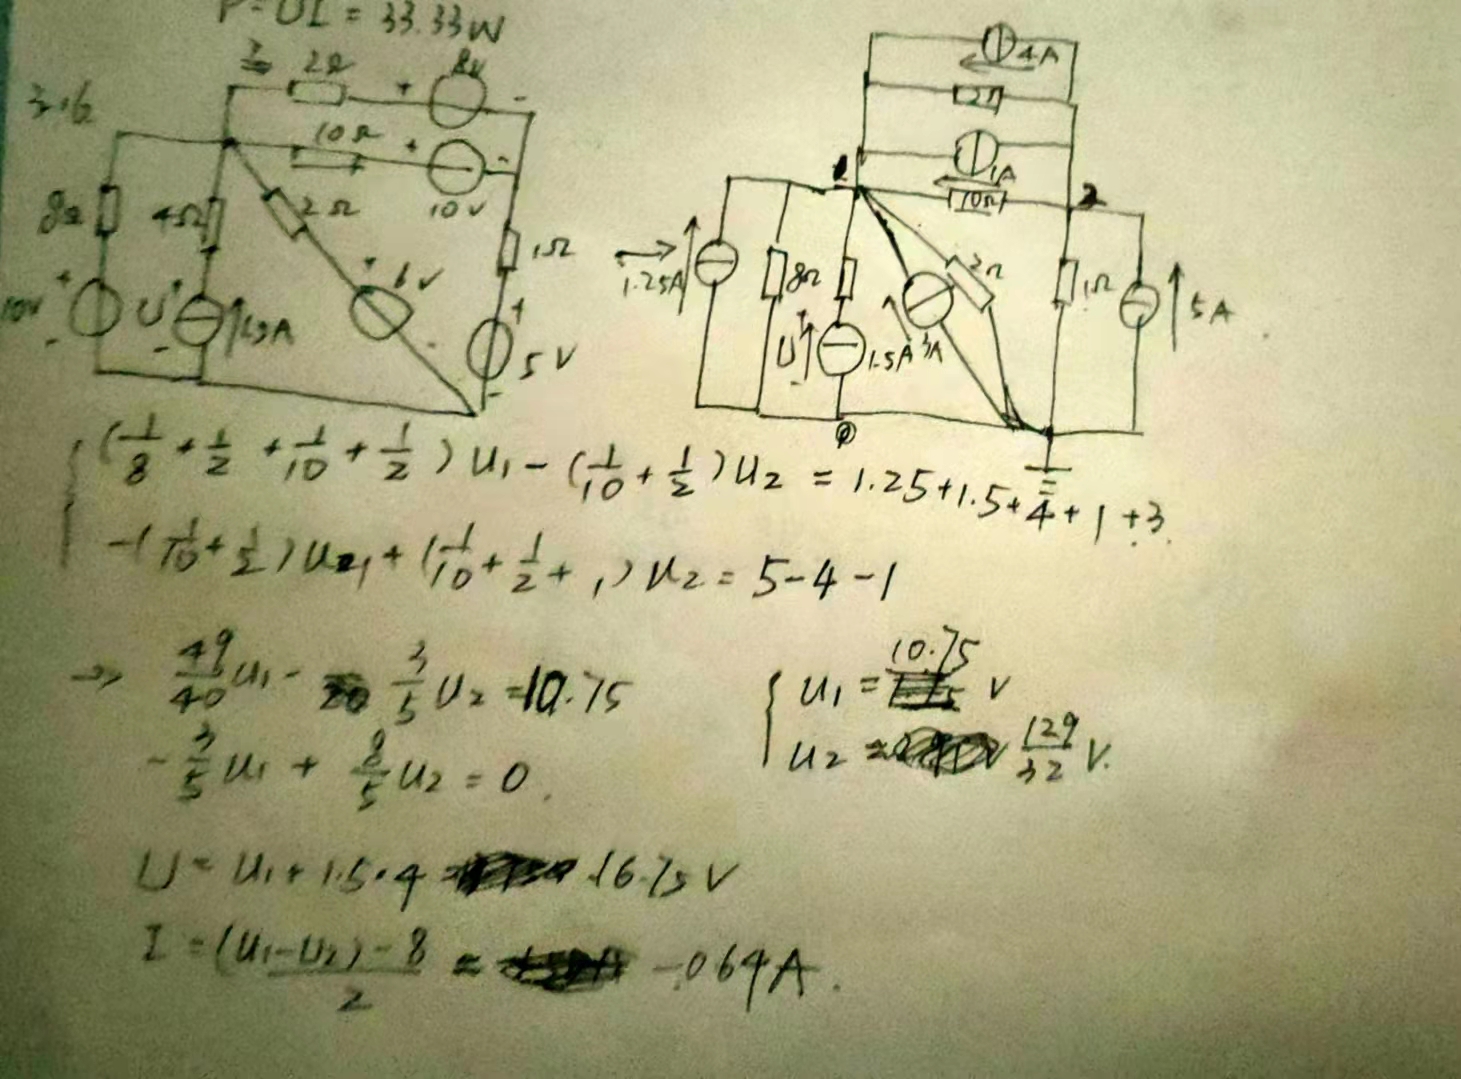 P=UI = 33.33W
3.16
2Ω
8V
+
-
10Ω
+
-
10V
8Ω
4Ω
2Ω
1Ω
10V
+
-
U
+
-
1.5A
+
6V
-
+
5V
-
4A
2Ω
1A
10Ω
1
2
1.25A
8Ω
U
+
-
1.5A
3A
2Ω
1Ω
5A
0
(1/8 + 1/2 + 1/10 + 1/2) U1 - (1/10 + 1/2) U2 = 1.25+1.5+4+1+3
-(1/10 + 1/2) U1 + (1/10 + 1/2 + 1) U2 = 5-4-1
→ 49/40 U1 - 3/5 U2 = 10.75
-3/5 U1 + 8/5 U2 = 0.
U1 = 10.75 V
U2 = 129/32 V.
U = U1 + 1.5·4 = 16.75V
I = (U1-U2)-8 / 2 = -0.64A.